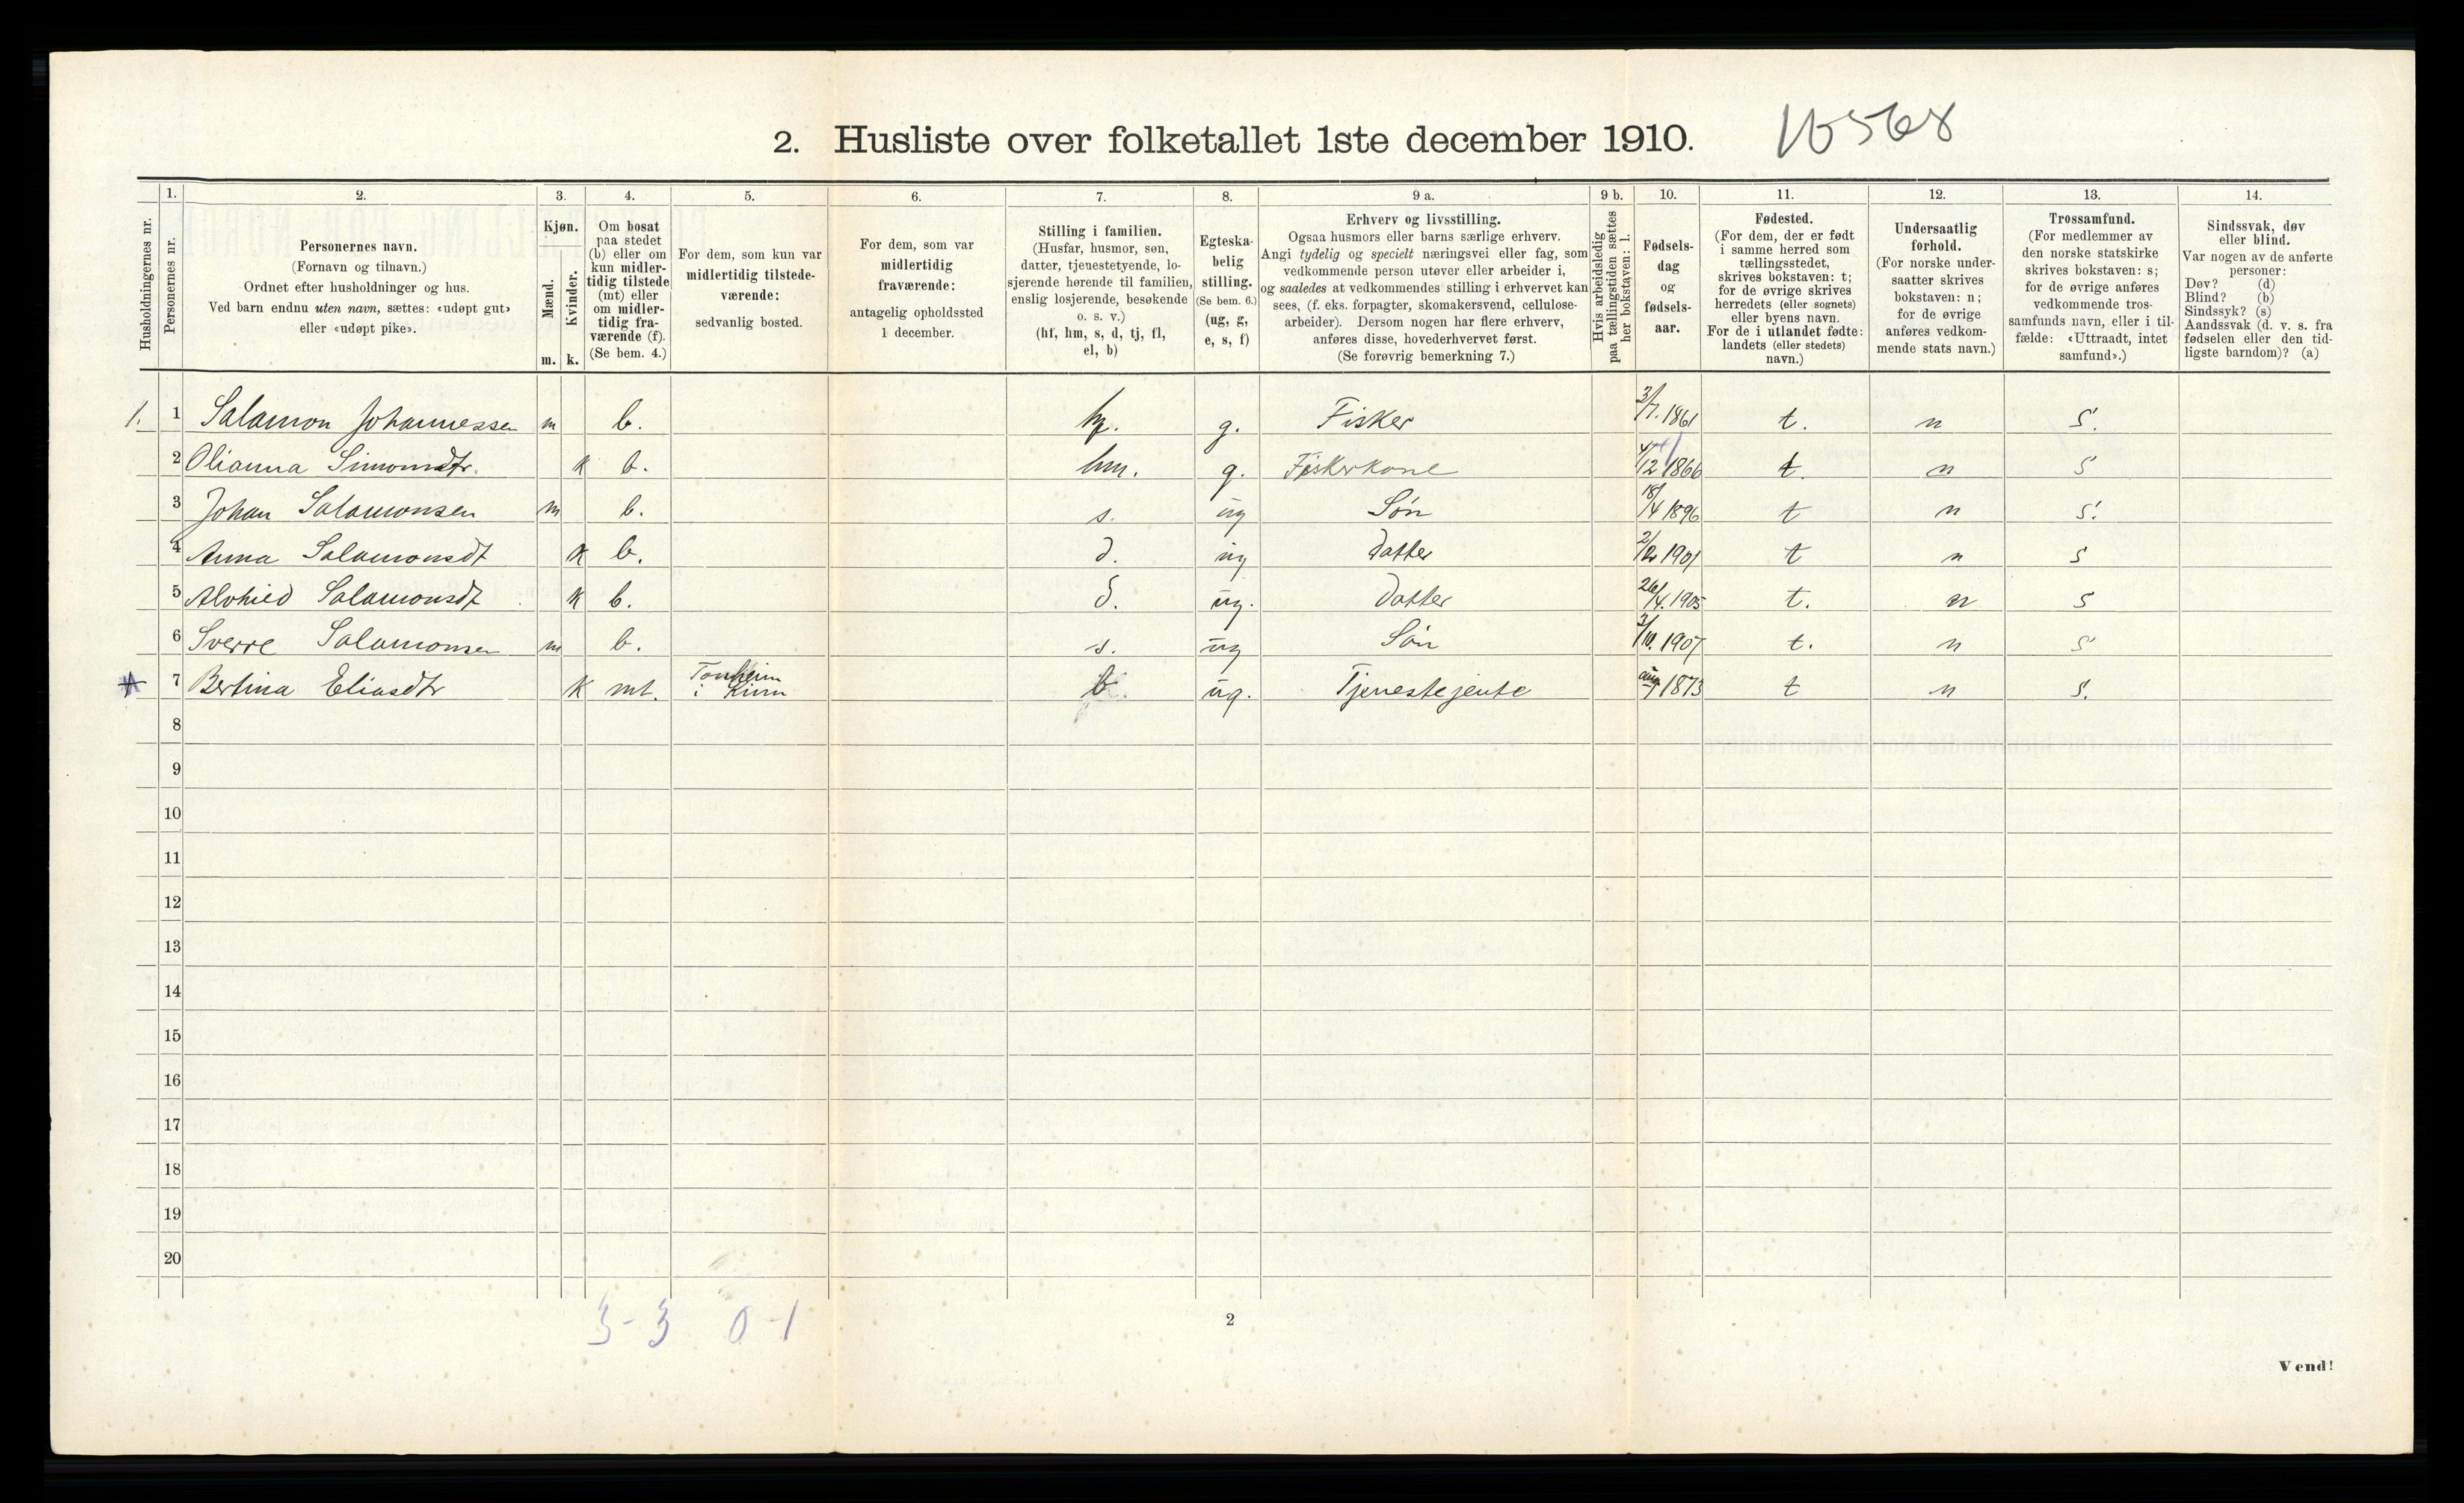 2. Husliste over folketallet 1ste december 1910.
10568
1. 2. 3. 4. 5. 6. 7. 8. 9 a. 9 b. 10. 11. 12. 13. 14.
Husholdningernes nr.
Personernes nr.
Personernes navn.
(Fornavn og tilnavn.)
Ordnet efter husholdninger og hus.
Ved barn endnu uten navn, sættes: «udøpt gut»
eller «udøpt pike».
Kjøn.
Mænd.
Kvinder.
m. k.
Om bosat
paa stedet
(b) eller om
kun midler-
tidig tilstede
(mt) eller
om midler-
tidig fra-
værende (f).
(Se bem. 4.)
For dem, som kun var
midlertidig tilstede-
værende:
sedvanlig bosted.
For dem, som var
midlertidig
fraværende:
antagelig opholdssted
1 december.
Stilling i familien.
(Husfar, husmor, søn,
datter, tjenestetyende, lo-
sjerende hørende til familien,
enslig losjerende, besøkende
o. s. v.)
(hf, hm, s, d, tj, fl,
el, b)
Egteska-
belig
stilling.
(Se bem. 6.)
(ug, g,
e, s, f)
Erhverv og livsstilling.
Ogsaa husmors eller barns særlige erhverv.
Angi tydelig og specielt næringsvei eller fag, som
vedkommende person utøver eller arbeider i,
og saaledes at vedkommendes stilling i erhvervet kan
sees, (f. eks. forpagter, skomakersvend, cellulose-
arbeider). Dersom nogen har flere erhverv,
anføres disse, hovederhvervet først.
(Se forøvrig bemerkning 7.)
Hvis arbeidsledig
paa tællingstiden sættes
her bokstaven: l.
Fødsels-
dag
og
fødsels-
aar.
Fødested.
(For dem, der er født
i samme herred som
tællingsstedet,
skrives bokstaven: t;
for de øvrige skrives
herredets (eller sognets)
eller byens navn.
For de i utlandet fødte:
landets (eller stedets)
navn.)
Undersaatlig
forhold.
(For norske under-
saatter skrives
bokstaven: n;
for de øvrige
anføres vedkom-
mende stats navn.)
Trossamfund.
(For medlemmer av
den norske statskirke
skrives bokstaven: s;
for de øvrige anføres
vedkommende tros-
samfunds navn, eller i til-
fælde: «Uttraadt, intet
samfund».)
Sindssvak, døv
eller blind.
Var nogen av de anførte
personer:
Døv? (d)
Blind? (b)
Sindssyk? (s)
Aandssvak (d. v. s. fra
fødselen eller den tid-
ligste barndom)? (a)
1. 1 Salamon Johannessen m b. hf. g. Fisker 3/7. 1861 t. n s.
2 Olianna Simonsdtr. k b. hm. g. Fiskerkone 4/12 1866 t. n s
3 Johan Salamonsen m b. s. ug Søn 18/4 1896 t n s.
4 Anna Salamonsdt k b. d. ug datter 1901 t n s
5 Alvhied Salamonsdt k b. d. ug. datter 26/4. 1905 t. n s
6 Sverre Salamonsen m b. s. ug Søn 3/10. 1907 t. n s
7 Bertina Eliasdtr k mt. Tonheim i Kinn b. ug. Tjenestejente 1873 t n s.
8
9
10
11
12
13
14
15
16
17
18
19
20
3-3 0-1
2
Vend!